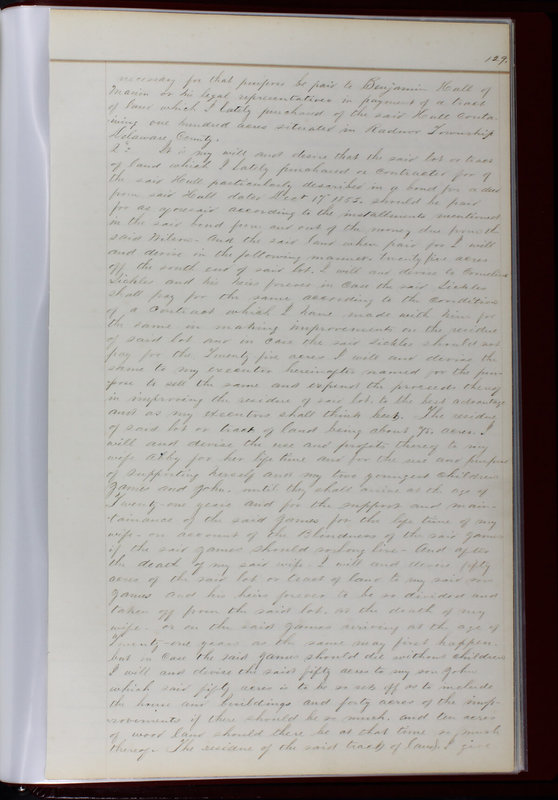 129.
necessary for that purpose be paid to Benjamin Hull of
Marion or his legal representatives in payment of a tract
of land which I lately purchased of the said Hull Contai
ning one hundred acres situated in Radnor Township
Delaware County.
It is my will and desire that the said lot or tract
of land which I lately purchased or contracted for of
the said Hull particularly described in a bond for a deed
from said Hull dated Dect 17th 1853. should be paid
for as aforesaid according to the installments mentioned
in the said bond from and out of the money due from the
said Wilson. And the said land when paid for I will
and devise in the following manner. Twenty five acres
off the south end of said lot. I will and devise to Cornelius
Sickles and his heirs forever in Case the said Sickles
shall pay for the same according to the conditions
of a Contract which I have made with him for
the same on making improvements on the residue
of said lot and in case the said Sickles should not
pay for the Twenty five acres I will and devise the
same to my executor hereinafter named for the pur
pose to sell the same and expend the proceeds thereof
in improving the residue of said lot. to the best advantage
and as my executors shall think best. The residue
of said lot or tract of land being about 75 acres. I
will and devise the use and profits thereof to my
wife Abby for her life time and for the use and purpose
of supporting herself and my two youngest children
James and John. until they shall arrive at the age of
Twenty-one years and for the support and main-
tainance of the said James for the life time of my
wife - on account of the Blindness of the said James
if the said James should so long live - And after
the death of my said wife. I will and devise fifty
acres of the said lot or tract of land to my said son
James and his heirs forever to be so divided and
taken off from the said lot. at the death of my
wife. or on the said James arriving at the age of
Twenty-one years as the same may first happen.
but in case the said James should die without children
I will and devise the said fifty acres to my son John
which said fifty acres is to be so set off as to include
the house and buildings and forty acres of the imp-
rovements if there should be so much. and ten acres
of wood land should there be at that time so much
thereof. The residue of the said tract of land. I give